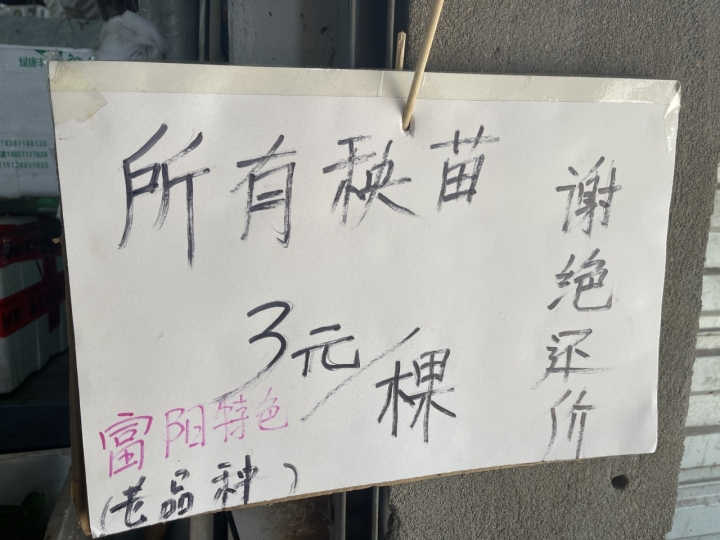 所有秧苗
3元/棵
谢绝还价
富阳特色
(老品种)